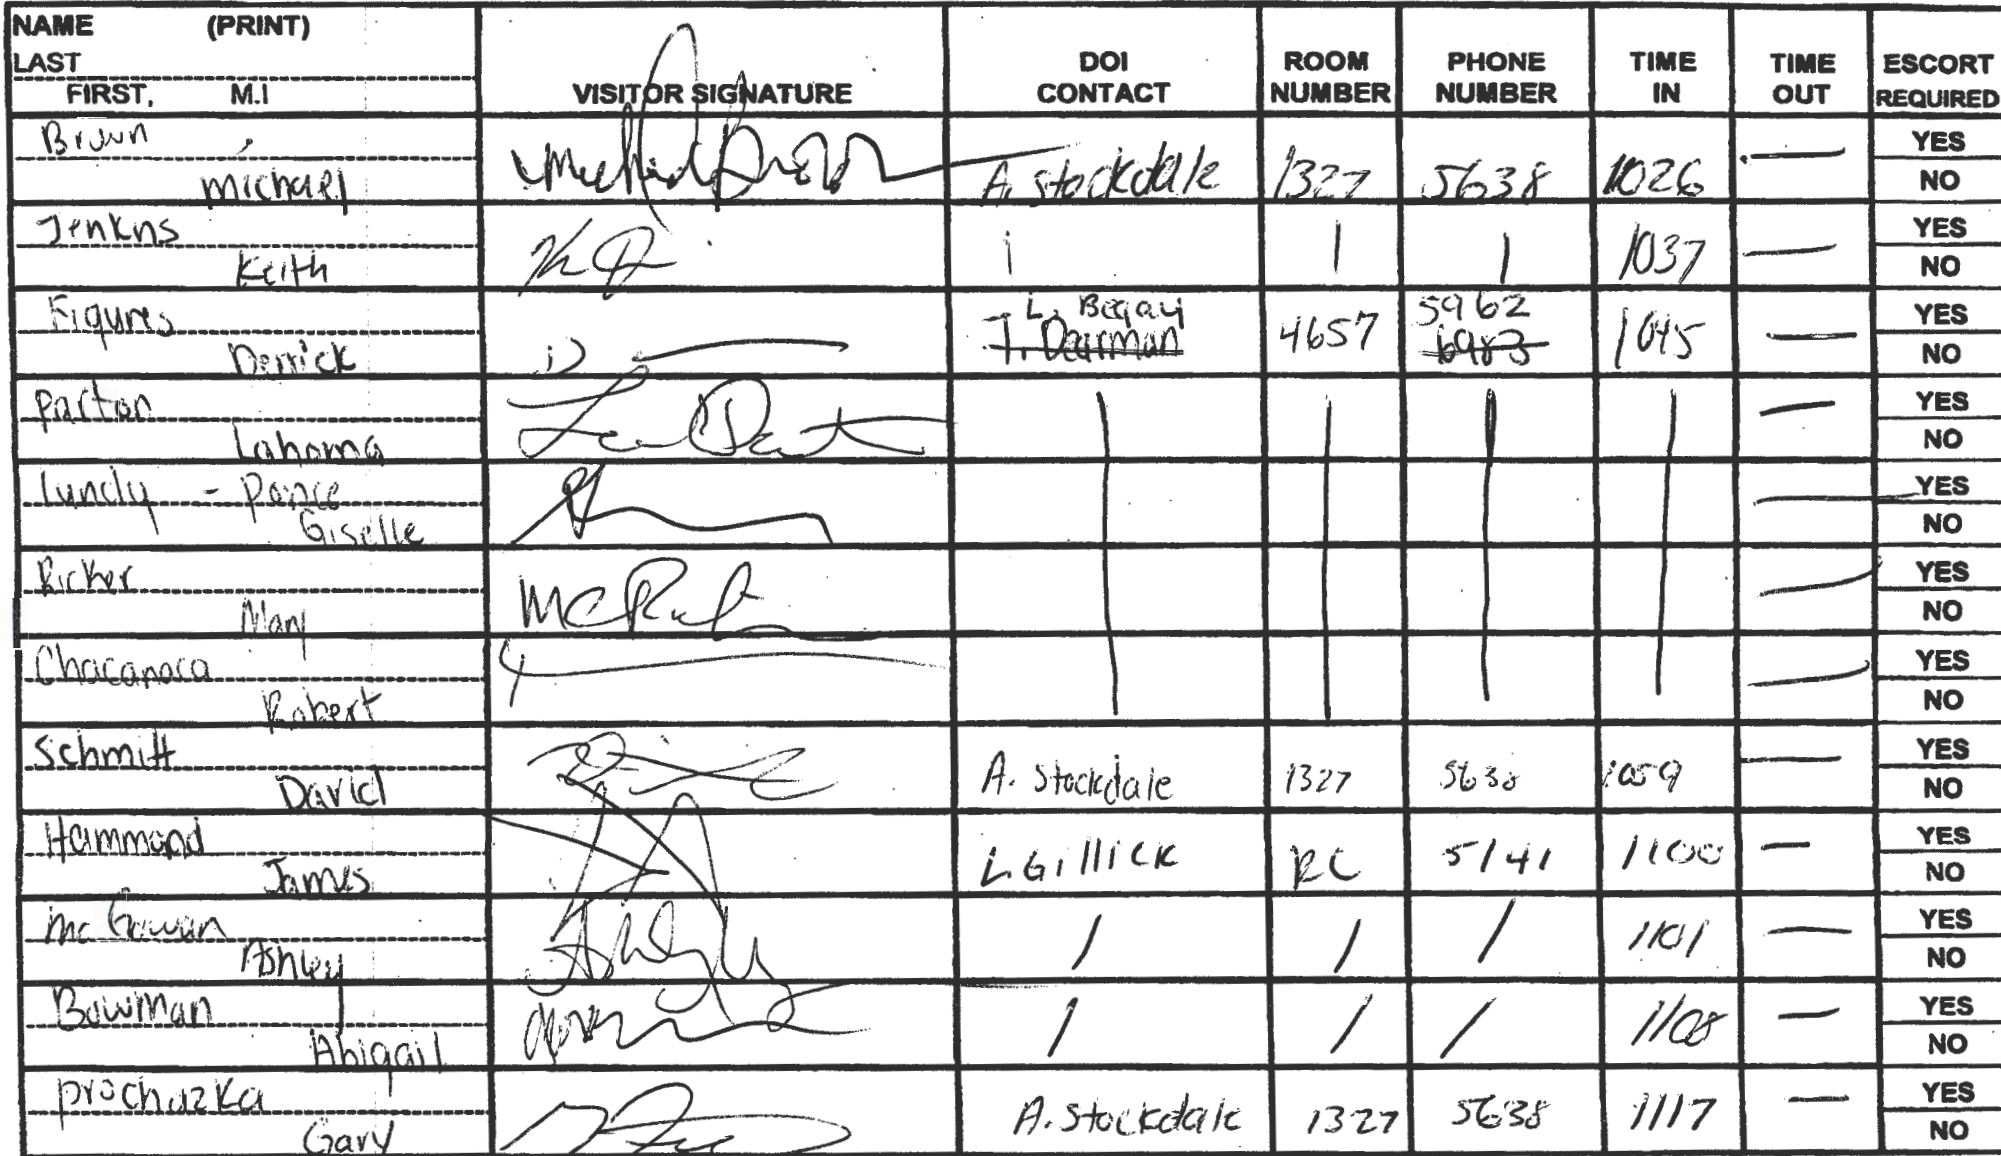 NAME (PRINT)
LAST
FIRST, M.I
VISITOR SIGNATURE
DOI
CONTACT
ROOM
NUMBER
PHONE
NUMBER
TIME
IN
TIME
OUT
ESCORT
REQUIRED
Brown
Michael
A. Stockdale 1327 5638 1026 —
YES
NO
Jenkns
Keith
| | | 1037 —
YES
NO
Figures
Derrick
L. Begay 5962
J. Dearman 4657 6983 1045 —
YES
NO
Parton
Lahoma
| | | | —
YES
NO
Lundy - Ponce
Giselle
| | | | —
YES
NO
Ricker
Mary
| | | | —
YES
NO
Chacanaca
Robert
| | | | —
YES
NO
Schmitt
David
A. Stockdale 1327 5638 1059 —
YES
NO
Hammond
James
L. Gillick RC 5141 1100 —
YES
NO
Mc Gowan
Ashley
/ / / 1101 —
YES
NO
Bowman
Abigail
/ / / 1108 —
YES
NO
Prochazka
Gary
A. Stockdale 1327 5638 1117 —
YES
NO